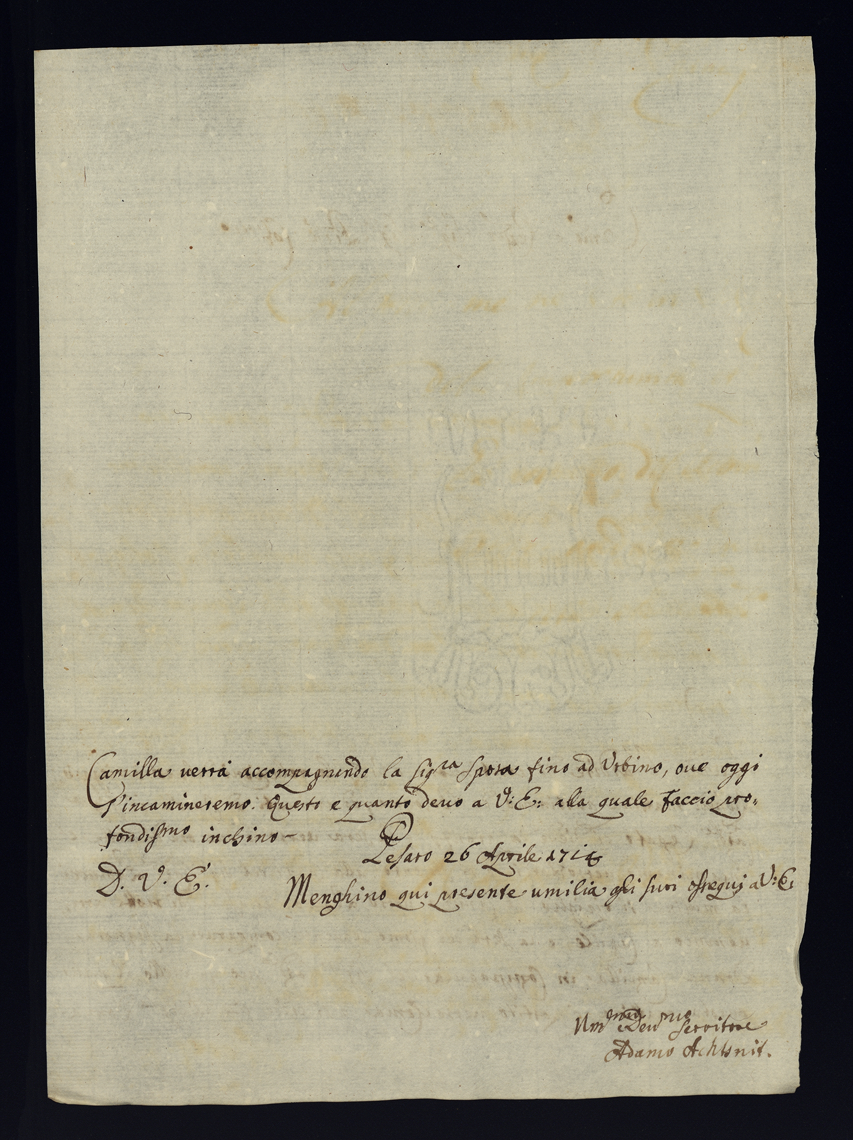 Camilla verrà accompagnando la sig.ra sposa fino ad Urbino, ove oggi
s'incamineremo. Questo e quanto devo a V: E: alla quale faccio pro=
fondissmo inchino —
Pesaro 26 Aprile 1714
D. V. E.
Menghino qui presente umilia gli suoi ossequj a V: E:
Um.mo e Dev.mo Servitore
Adamo Achtsnit.